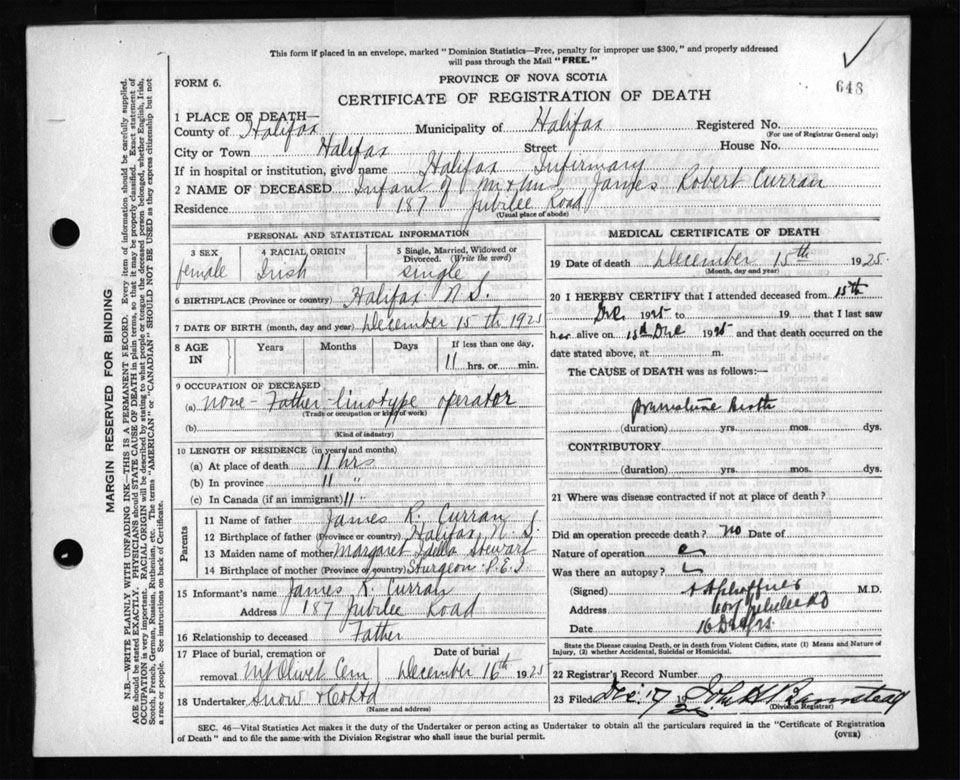 This form if placed in an envelope, marked "Dominion Statistics—Free, penalty for improper use $300," and properly addressed
will pass through the Mail "FREE."
648
FORM 6.
PROVINCE OF NOVA SCOTIA
CERTIFICATE OF REGISTRATION OF DEATH
1 PLACE OF DEATH—
County of Halifax Municipality of Halifax Registered No.
(For use of Registrar General only)
City or Town Halifax Street House No.
If in hospital or institution, give name Halifax Infirmary
2 NAME OF DECEASED Infant of Mr & Mrs James Robert Curran
Residence 187 Jubilee Road
(Usual place of abode)
PERSONAL AND STATISTICAL INFORMATION
3 SEX
female
4 RACIAL ORIGIN
Irish
5 Single, Married, Widowed or
Divorced. (Write the word)
single
6 BIRTHPLACE (Province or country) Halifax N.S.
7 DATE OF BIRTH (month, day and year) December 15th 1925
8 AGE
IN
Years
Months
Days
If less than one day,
11 hrs. or min.
9 OCCUPATION OF DECEASED
(a) none - Father - linotype operator
(Trade or occupation or kind of work)
(b)
(Kind of industry)
10 LENGTH OF RESIDENCE (in years and months)
(a) At place of death 11 hrs
(b) In province 11 "
(c) In Canada (if an immigrant) 11 "
Parents
11 Name of father James R. Curran
12 Birthplace of father (Province or country) Halifax, N.S.
13 Maiden name of mother Margaret Idella Stewart
14 Birthplace of mother (Province or country) Sturgeon P.E.I.
15 Informant's name James R. Curran
Address 187 Jubilee Road
16 Relationship to deceased Father
17 Place of burial, cremation or
removal Mt Olivet Cem
Date of burial
December 16th 1925
18 Undertaker Snow & Co Ltd
(Name and address)
MEDICAL CERTIFICATE OF DEATH
19 Date of death December 15th 1925.
(Month, day and year)
20 I HEREBY CERTIFY that I attended deceased from 15th
Dec 1925 to 19 that I last saw
her alive on 15th Dec 1925 and that death occurred on the
date stated above, at m.
The CAUSE of DEATH was as follows:—
premature birth
(duration) yrs. mos. dys.
CONTRIBUTORY
(duration) yrs. mos. dys.
21 Where was disease contracted if not at place of death?
Did an operation precede death? no Date of
Nature of operation
Was there an autopsy?
(Signed) M.D.
Address Jubilee Rd
Date 16 Dec
State the Disease causing Death, or in death from Violent Causes, state (1) Means and Nature of
Injury, (2) whether Accidental, Suicidal or Homicidal.
22 Registrar's Record Number
23 Filed Dec. 17 1925
(Division Registrar)
SEC. 46—Vital Statistics Act makes it the duty of the Undertaker or person acting as Undertaker to obtain all the particulars required in the "Certificate of Registration
of Death" and to file the same with the Division Registrar who shall issue the burial permit.
(OVER)
MARGIN RESERVED FOR BINDING
N.B.—WRITE PLAINLY WITH UNFADING INK—THIS IS A PERMANENT RECORD. Every item of information should be carefully supplied.
AGE should be stated EXACTLY. PHYSICIANS should STATE CAUSE OF DEATH in plain terms, so that it may be properly classified. Exact statement of
OCCUPATION is very important. RACIAL ORIGIN will be described by stating to what people or tongue the deceased person belonged, whether English, Irish,
Scotch, French, German, Russian, Ruthenian, etc. The terms "AMERICAN" or "CANADIAN" SHOULD NOT BE USED as they express citizenship but not
a race or people. See instructions on back of Certificate.